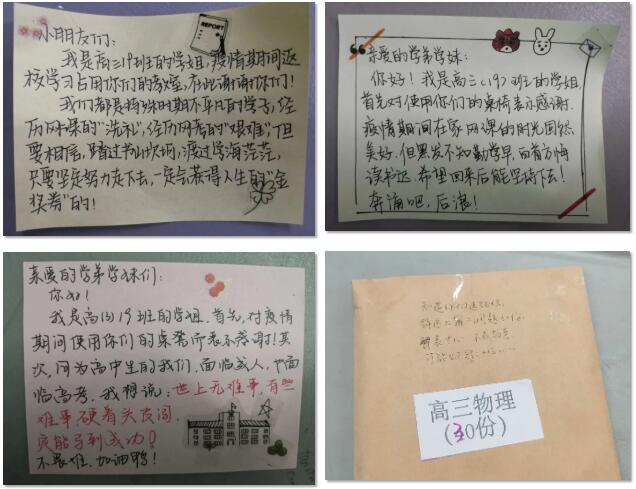 小朋友们：
REPORT
我是高三19班的学姐，疫情期间返
校学习占用你们的教室，在此谢谢你们！
我们都是特殊时期不平凡的学子，经
历网课的“洗礼”，经历网考的“艰难”，但
要相信，踏过书山坎坷，渡过学海茫茫，
只要坚定努力走下去，一定会获得人生的“金
奖券”的！
亲爱的学弟学妹：
你好！我是高三(19)班的学姐，
首先对使用你们的桌椅表示感谢.
疫情期间在家网课的时光固然
美好.但黑发不知勤学早，白首方悔
读书迟.希望回来后能坚持下去！
奔涌吧，后浪！
亲爱的学弟学妹们：
你好！
我是高(3)19班的学姐.首先，对疫情
期间使用你们的桌凳所表示感谢！其
次，同为高中生的我们，面临成人，也面
临高考.我想说：世上无难事，有些
难事，硬着头皮闯，
只能马到成功！
不畏难.加油鸭！
高三物理
(30份)